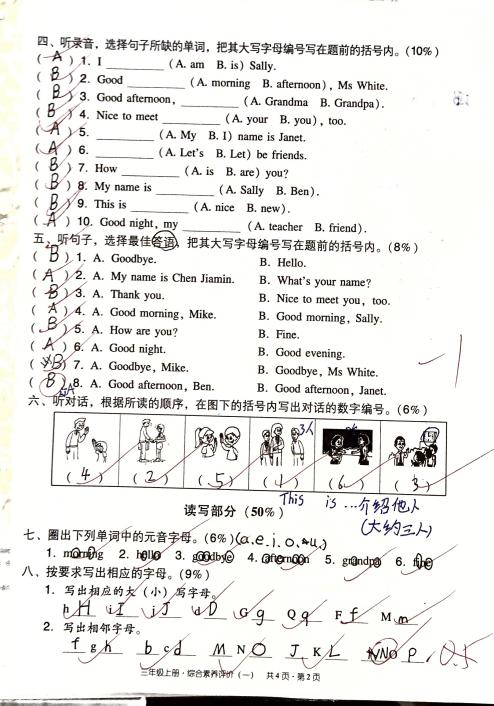 四、听录音，选择句子所缺的单词，把其大写字母编号写在题前的括号内。(10%)
( A ) 1. I ________ (A. am B. is) Sally.
( B ) 2. Good ________ (A. morning B. afternoon), Ms White.
( B ) 3. Good afternoon, ________ (A. Grandma B. Grandpa).
( B ) 4. Nice to meet ________ (A. your B. you), too.
( A ) 5. ________ (A. My B. I) name is Janet.
( A ) 6. ________ (A. Let's B. Let) be friends.
( B ) 7. How ________ (A. is B. are) you?
( B ) 8. My name is ________ (A. Sally B. Ben).
( B ) 9. This is ________ (A. nice B. new).
( A ) 10. Good night, my ________ (A. teacher B. friend).
五、听句子，选择最佳答语，把其大写字母编号写在题前的括号内。(8%)
( B ) 1. A. Goodbye. B. Hello.
( A ) 2. A. My name is Chen Jiamin. B. What's your name?
( B ) 3. A. Thank you. B. Nice to meet you, too.
( A ) 4. A. Good morning, Mike. B. Good morning, Sally.
( B ) 5. A. How are you? B. Fine.
( A ) 6. A. Good night. B. Good evening.
( B ) 7. A. Goodbye, Mike. B. Goodbye, Ms White.
( B ) 8. A. Good afternoon, Ben. B. Good afternoon, Janet.
六、听对话，根据所读的顺序，在图下的括号内写出对话的数字编号。(6%)
3人
( 4 ) ( 2 ) ( 5 ) ( 1 ) ( 6 ) ( 3 )
This is ...介绍他人
(大约三人)
读写部分 (50%)
七、圈出下列单词中的元音字母。(6%) (a.e.i.o.u)
1. morning 2. hello 3. goodbye 4. afternoon 5. grandpa 6. fine
八、按要求写出相应的字母。(9%)
1. 写出相应的大（小）写字母。
h H i I j J d D G g Q q F f M m
2. 写出相邻字母。
f g h b c d M N O J K L N O P 0.5
三年级上册·综合素养评价（一） 共4页·第2页